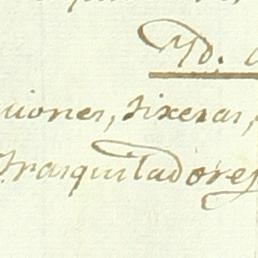 Yd.
uiones, tixeras,
Trasquiladores